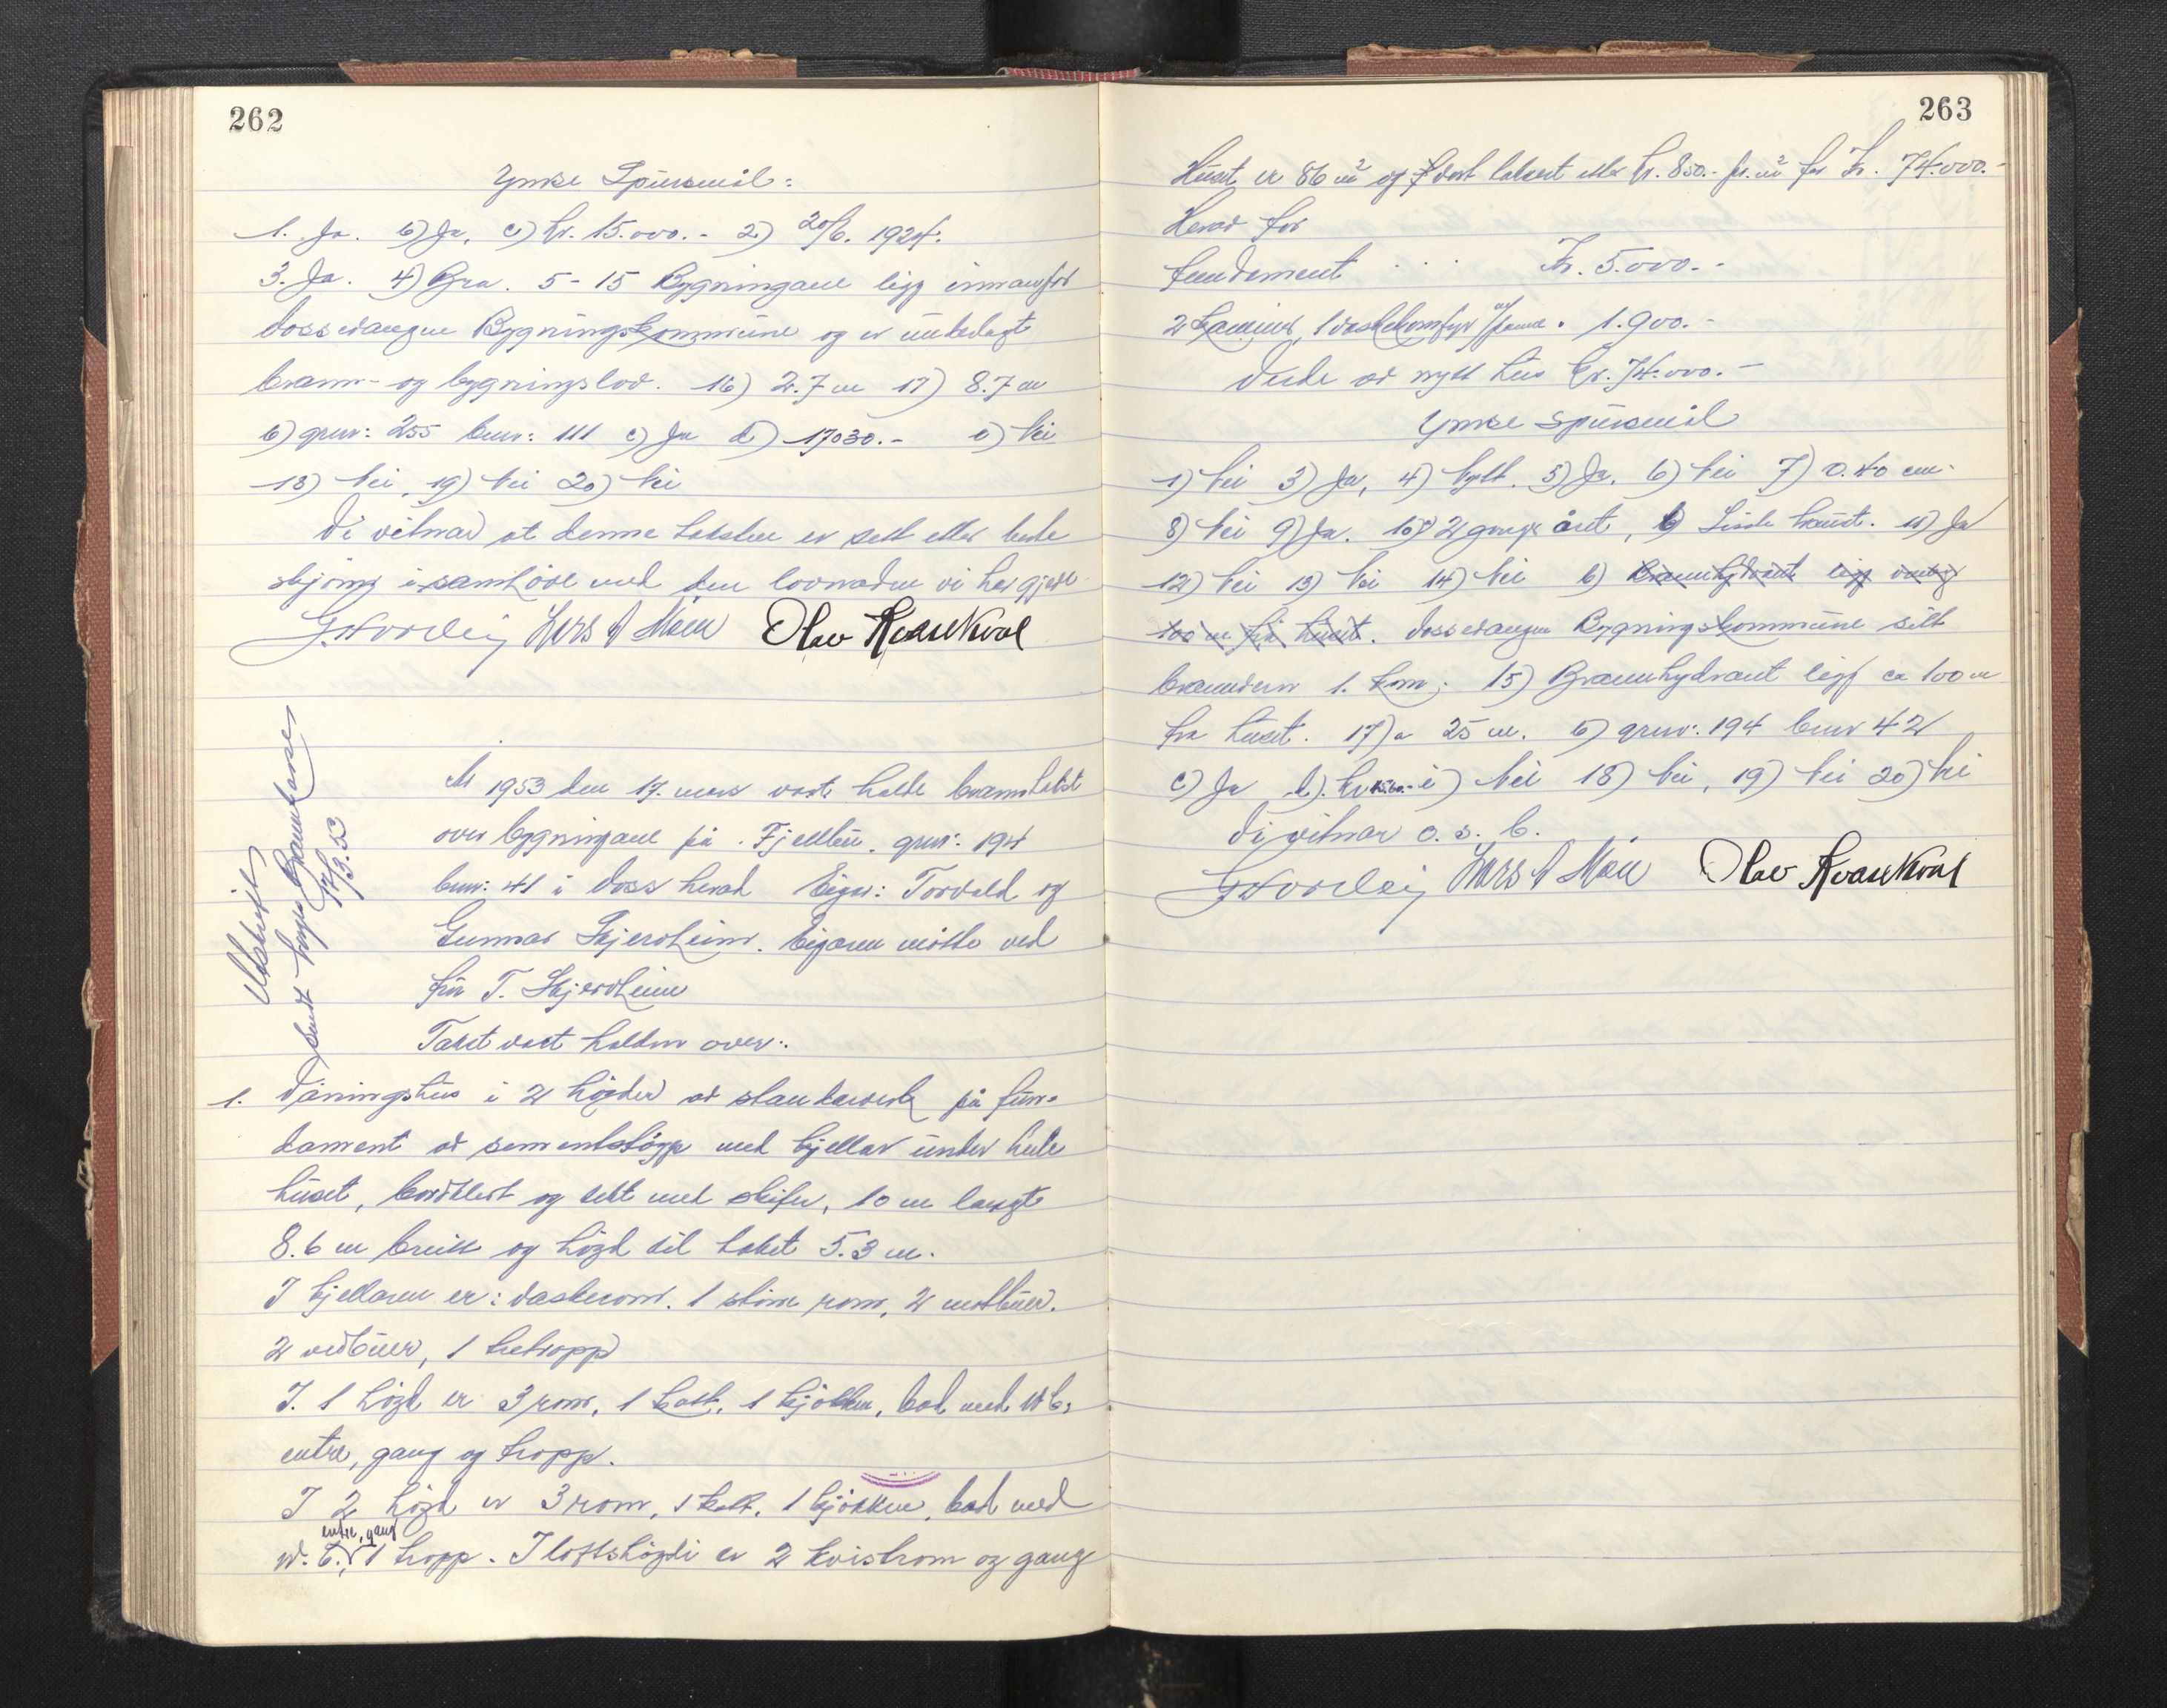 262
Ymse Spursmål:
1. Ja. b) Ja, c) kr. 15.000.- 2) 20/6. 1924.
3. Ja. 4) Bra. 5-15 Bygningane ligg innanfor
Vossevangen Bygningskommune og er underlagt
brann- og bygningslov. 16) 2.7 m 17) 8.7 m
b) grnr: 255 bnr: 111 c) Ja d) 17030.- e) Nei
18) Nei, 19) Nei 20) Nei
Vi vitnar at denne taksten er sett etter beste
skjøng i samhøve med den lovnaden vi har gjeve.
G Nordheig Lars A Møen Olav Kvarekval
Utskrift
sendt Norges Brannkasse
17/3. 53
År 1953 den 17. mars vart halde branntakst
over bygningane på Fjellbu. grnr: 194
bnr: 41 i Voss herad Eigar: Torvald og
Gunnar Skjerdheim. Eigaren møtte ved
fru T. Skjerdheim
Takst vart halden over:
1. Våningshus i 2 høgder av standarverk på fun-
dament av sementstøyp med kjellar under heile
huset, bordkledt og tekt med skifer, 10 m langt
8.6 m breitt og høgd til taket 5.3 m.
I kjellaren er: vaskerom. 1 rom, 2 matbuer.
2 vedbuer, 1 tretropp
I. 1 høgd er 3 rom, 1 kott, 1 kjøkken, bad med W.C,
entre, gang og tropp.
I 2 høgd er 3 rom, 1 kott, 1 kjøkken, bad med
entre, gang
W. C., 1 tropp. I loftshøgdi er 2 kvistrom og gang
263
Huset er 86 m² og vert taksert etter kr. 850.- pr. m² for Kr. 74.000.-
Herav for
fundament . . . Kr. 5.000.-
2 kaminer, 1 vaskekomfyr m/panne " 1.900.-
Verde av nytt hus kr. 74.000.-
Ymse spursmål
1) Nei 3) Ja, 4) Nytt. 5) Ja. 6) Nei 7) 0.40 cm.
8) Nei 9) Ja. 10) 2 gonger året, b) Siste haust. 11) Ja
12) Nei 13) Nei 14) Nei b) Brannhydrant ligg omkring
100 m frå huset. Vossevangen Bygningskommune sitt
brannvern 1. km; 15) Brannhydrant ligg ca 100 m
fra huset. 17) a 25 m. b) grnr: 194 bnr 42
c) Ja d). kr e) Nei 18) Nei, 19) Nei 20) Nei
Vi vitnar o. s. b.
G Nordheig Lars A Møen Olav Kvarekval